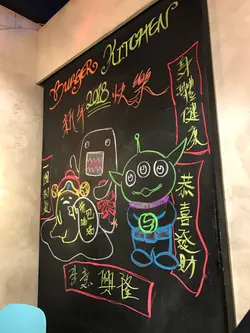 BURGER KITCHEN
新年2018快樂
身體健康
恭喜發財
生意興隆